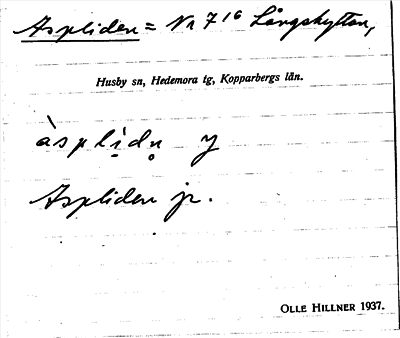 Aspliden = Nr 7¹⁶ Långshyttan,
Husby sn, Hedemora tg, Kopparbergs län.
àsplị̀dṇ y
Aspliden jr.
OLLE HILLNER 1937.